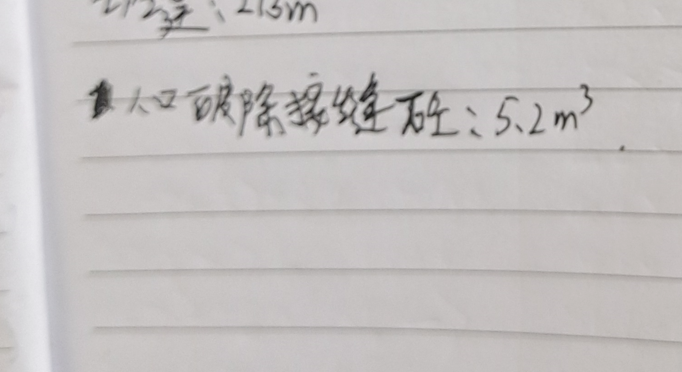 213m
人口破除接缝砼：5.2m³